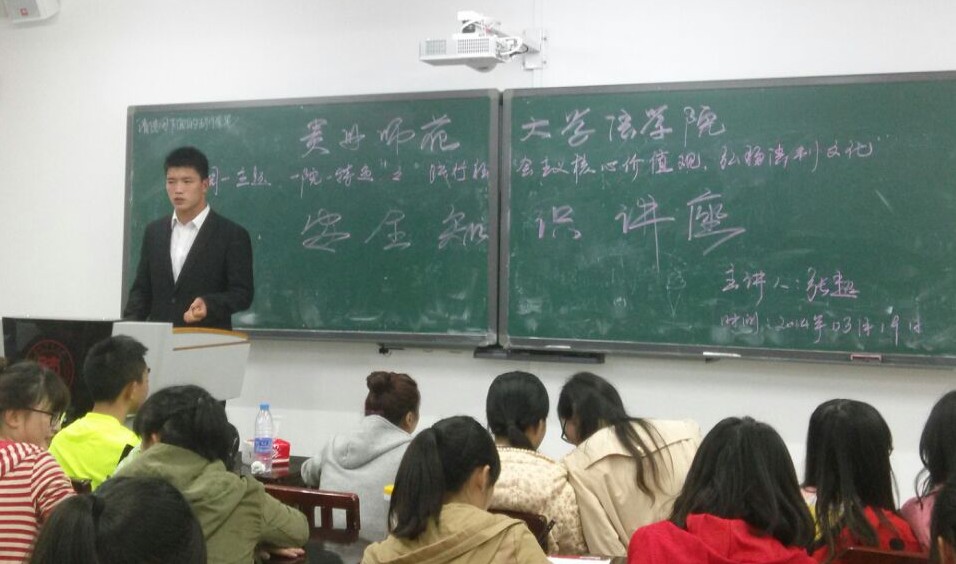 贵州师范大学法学院
一院一特色"之"践行核心价值观、弘扬法制文化"
安全知识讲座
主讲人:张超
时间:2014年03月19日